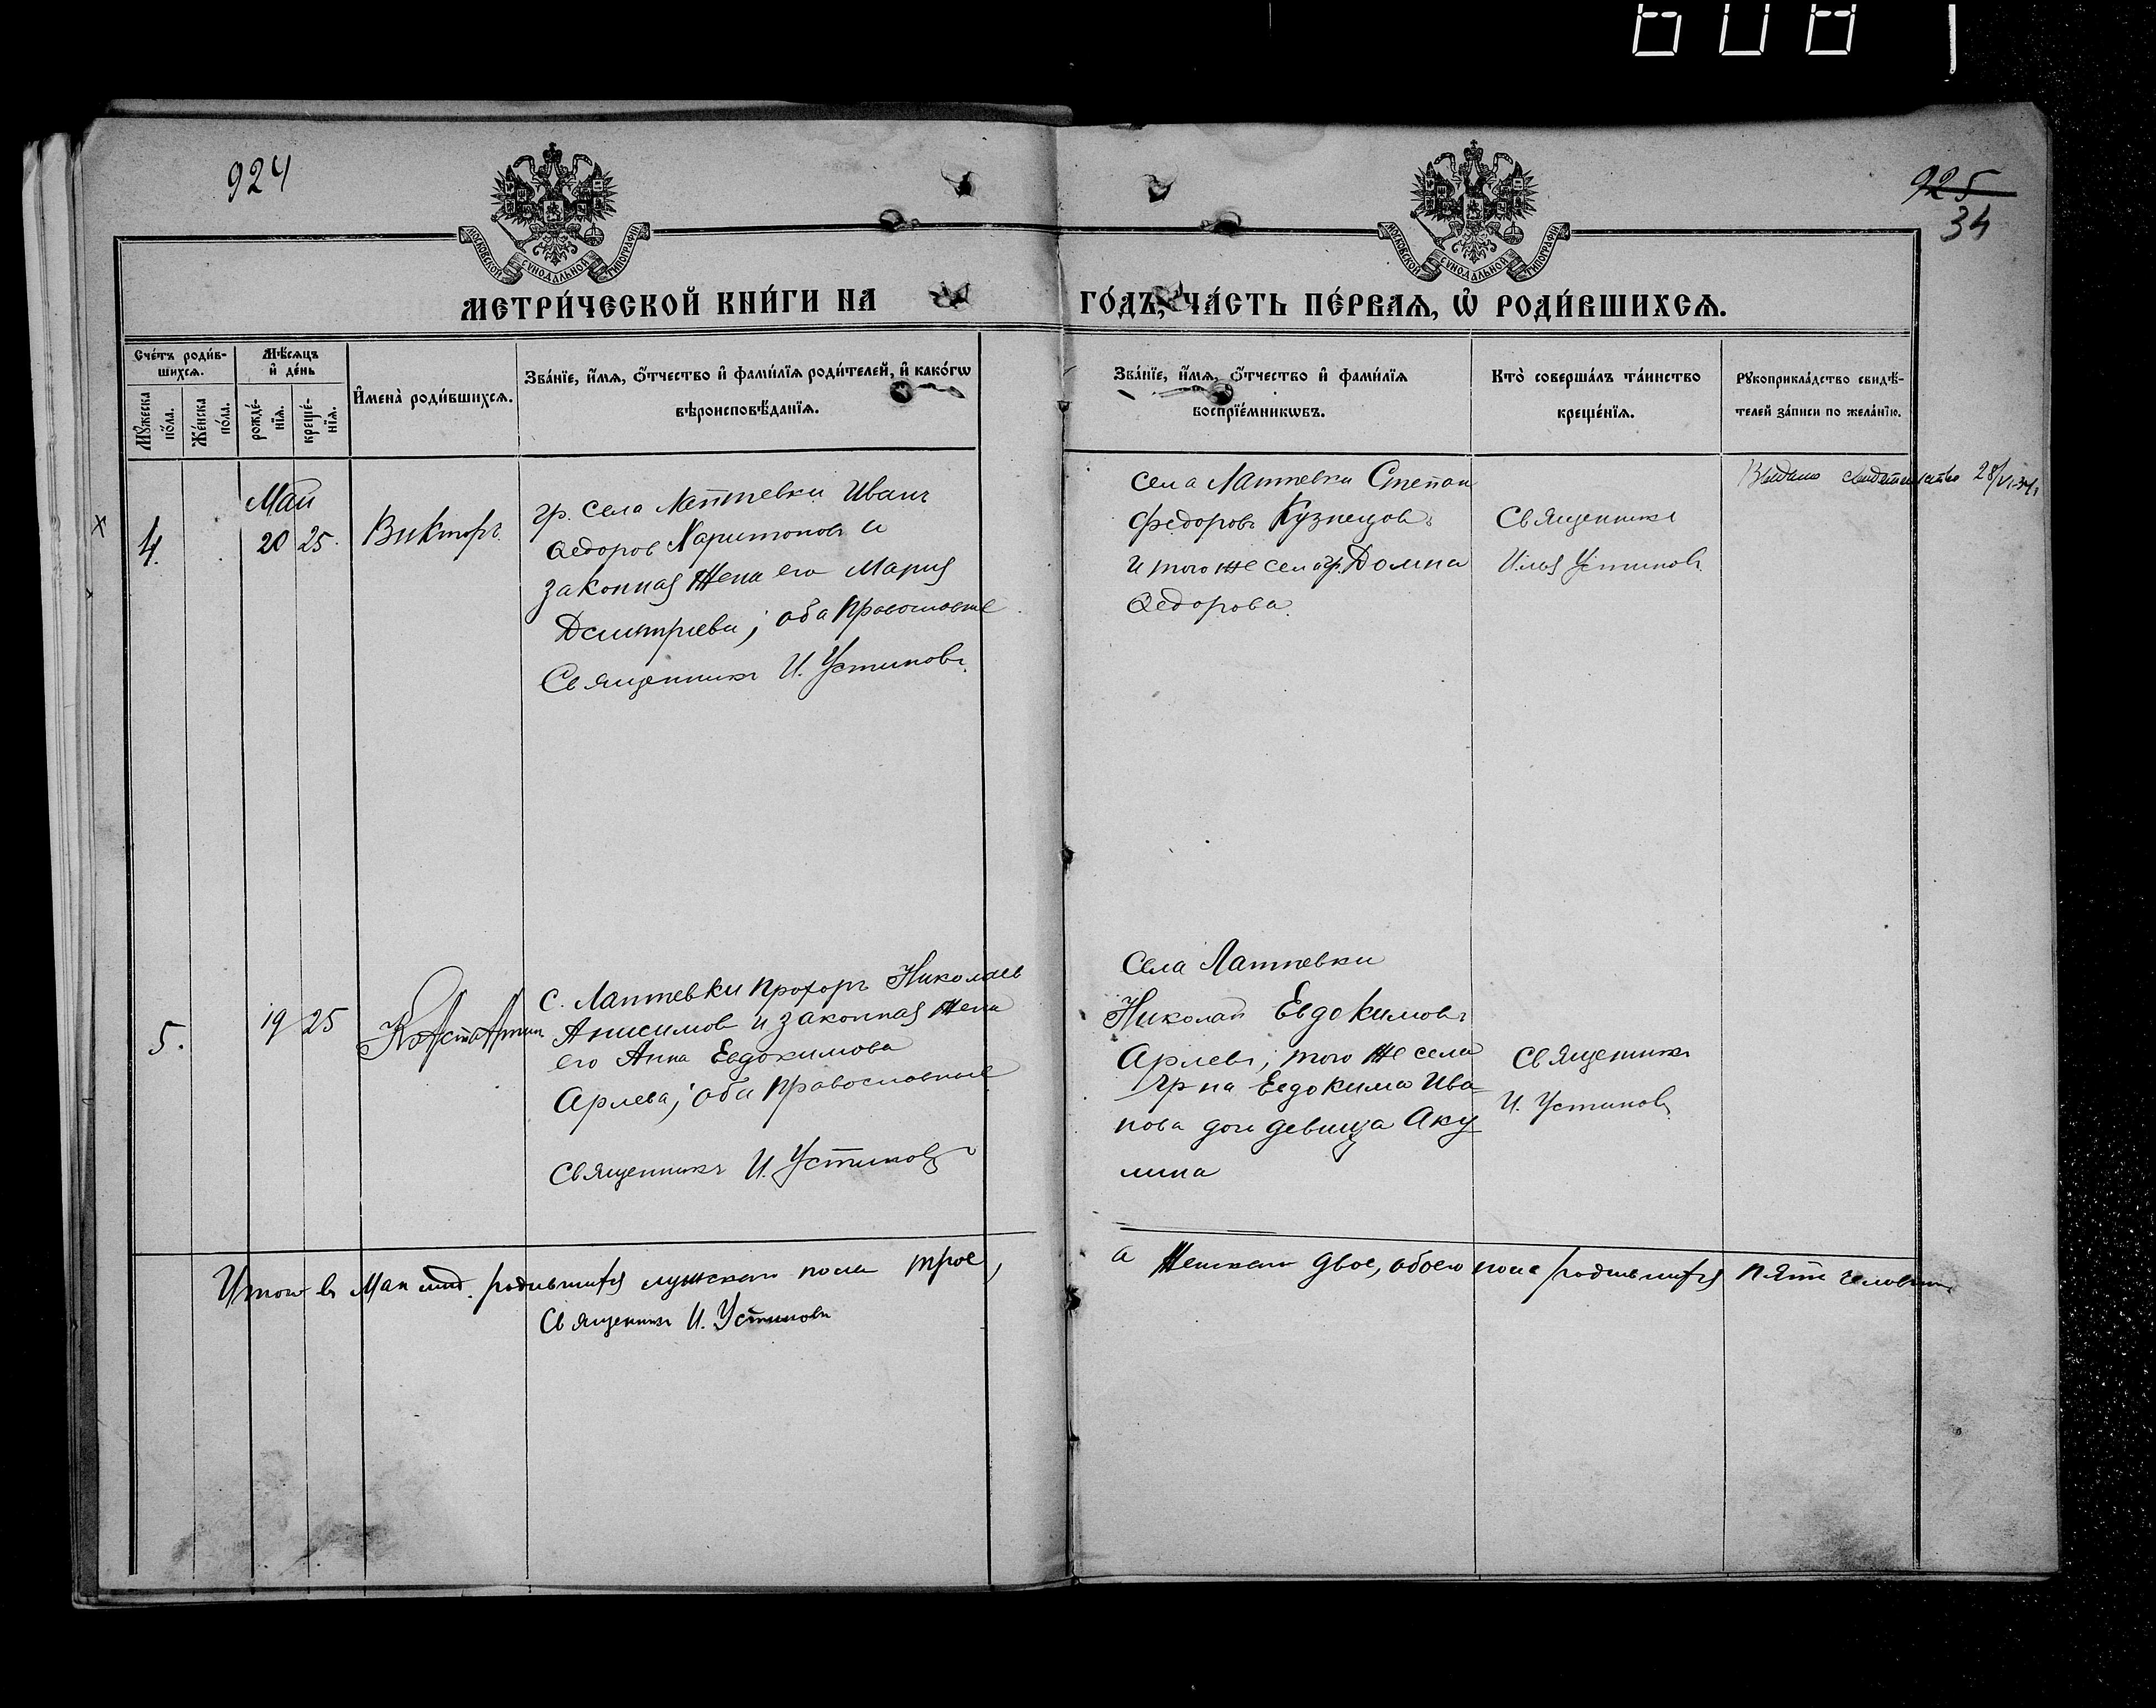 924
925
34
МОСКОВСКОЙ СѴНОДАЛЬНОЙ ТИПОГРАФІИ
МОСКОВСКОЙ СѴНОДАЛЬНОЙ ТИПОГРАФІИ
МЕТРИ́ЧЕСКОЙ КНИ́ГИ НА
ГО́ДЪ, ЧА́СТЬ ПЕ́РВАѦ, Ѽ РОДИ́ВШИХСѦ.
Сче́тъ роди́в-
шихсѧ.
Мѣ́сѧцъ
и҆ де́нь
Мꙋ́жеска
по́ла.
Же́нска
по́ла.
рожде́-
нїѧ.
креще́-
нїѧ.
И҆мена̀ роди́вшихсѧ.
Зва́нїе, и҆́мѧ, ѻ҆́тчество и҆ фами́лїѧ роди́телей, и҆ како́гѡ
вѣроисповѣ́данїѧ.
Зва́нїе, и҆́мѧ, ѻ҆́тчество и҆ фами́лїѧ
воспрїе́мникѡвъ.
Кто̀ соверша́лъ та́инство
креще́нїѧ.
Рꙋкоприкла́дство свидѣ́-
телей за́писи по жела́нїю.
Май
4.
20 25.
Викторъ
гр. села Лаптевки Иванъ
Ѳедоров Харитоновъ и
законная жена его Мария
Дмитриева; оба православные
Священникъ И. Устиновъ.
села Лаптевки Степан
Федоровъ Кузнецовъ
и того же села гр. Домна
Ѳедорова.
Священникъ
Илья Устиновъ.
Выдано свидетельство 28/VI-34г
5.
19 25
Константин
с. Лаптевки Прохоръ Николаев
Анисимов и законная жена
его Анна Евдокимова
Арлева; оба православные
Священникъ И. Устиновъ
Села Лаптевки
Николай Евдокимовъ
Арлевъ; того же села
гр-на Евдокима Ива-
нова дочь девица Аку
лина
Священникъ
И. Устиновъ
Итого въ Мае родившихся мужскаго пола трое,
а женскаго двое, обоего пола родившихся пять человек
Священникъ И. Устиновъ